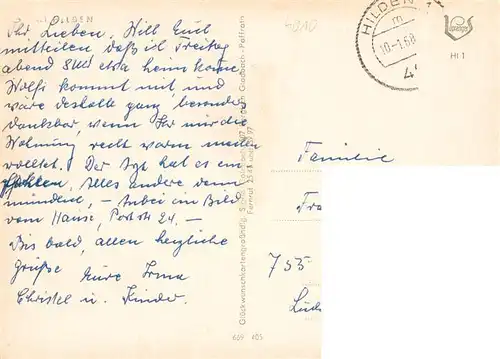 HILDEN
Ihr Lieben, Will Euch
mitteilen daß ich Freitag
abend 8 Uhr etwa heim komme
Wolfi kommt mit, und
wäre deshalb ganz besonders
dankbar, wenn Ihr mir die
Wohnung recht warm machen
wolltet. Der Arzt hat es em
pfohlen, Alles andere dann
mündlich, - Anbei im Bild
vom Hause, Poststr 24. -
Bis bald, allen herzliche
Grüße Eure Irma
Christel u. Kinder.
Glückwunschkartengroßhandlg.
Gladbach - Paffrath
669 405
HILDEN 1
10.-1.68
Hi 1
Familie
Fra
755